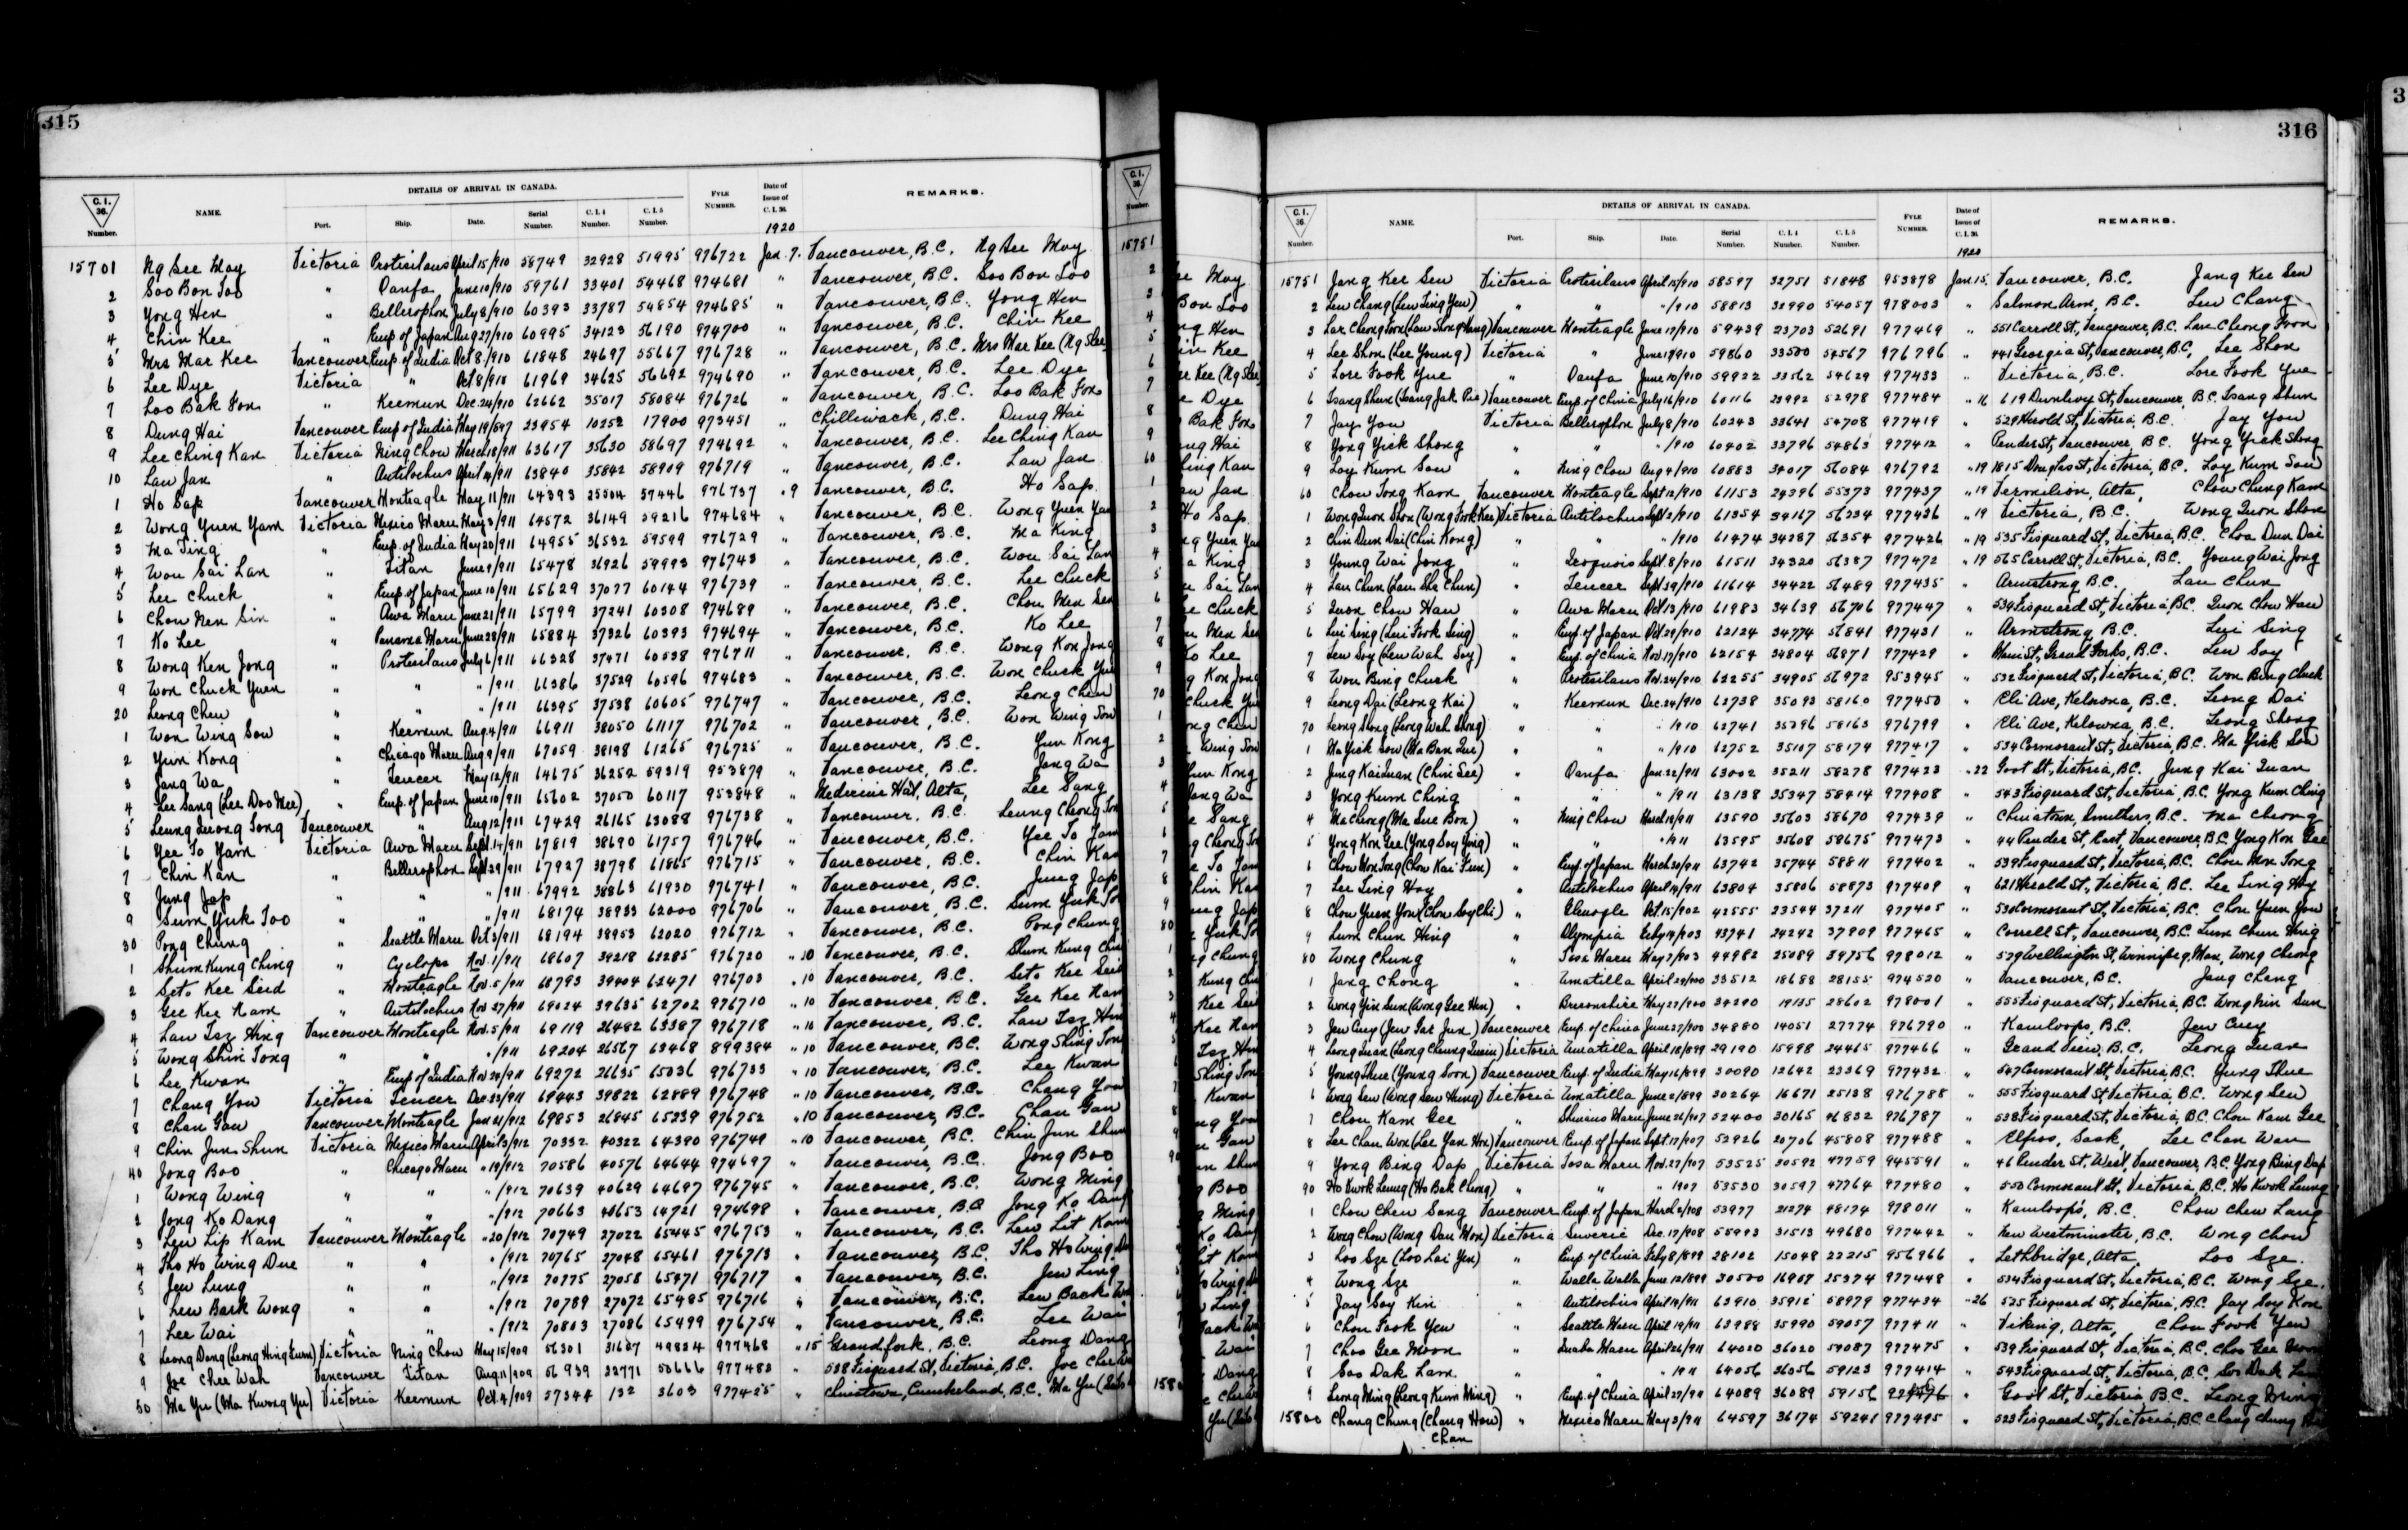 315
DETAILS OF ARRIVAL IN CANADA.
C. I. 36. Number. NAME. Port. Ship. Date. Serial Number. C. I. 4 Number. C. I. 5 Number. FYLE NUMBER. Date of Issue of C. I. 36. REMARKS.
1920
15701 Ng See May Victoria Protesilaus April 15/910 58749 32928 51995 976722 Jan 7. Vancouver, B.C. Ng See May
2 Soo Bon Too " Oanfa June 10/910 59761 33401 54468 974681 " Vancouver, B.C. Soo Bon Loo
3 Yong Hen " Bellerophon July 8/910 60393 33787 54854 974685 " Vancouver, B.C. Yong Hen
4 Chin Kee " Emp. of Japan Aug 27/910 60995 34123 56190 974700 " Vancouver, B.C. Chin Kee
5 Mrs Mar Kee Vancouver Emp. of India Oct 8/910 61848 24697 55667 976728 " Vancouver, B.C. Mrs Mar Kee (Ng Shee
6 Lee Dye Victoria " Oct 8/910 61969 34625 56692 974690 " Vancouver, B.C. Lee Dye
7 Loo Bak Fon " Keemun Dec. 24/910 62662 35017 58084 976726 " Vancouver, B.C. Loo Bak Fon
8 Dung Hai Vancouver Emp. of India May 19/897 23954 10252 17900 973451 " Chilliwack, B.C. Dung Hai
9 Lee Ching Kan Victoria Ning Chow March 18/911 63617 35630 58697 974692 " Vancouver, B.C. Lee Ching Kan
10 Lau Jan " Antilochus April 19/911 63840 35842 58909 976719 " Vancouver, B.C. Lau Jan
1 Ho Sap Vancouver Monteagle May 11/911 64393 25504 57446 976737 " 9 Vancouver, B.C. Ho Sap
2 Wong Yuen Yam Victoria Mexico Maru May 3/911 64572 36149 59216 974684 " Vancouver, B.C. Wong Yuen Yam
3 Ma Ting " Emp. of India May 20/911 64955 36532 59599 976729 " Vancouver, B.C. Ma King
4 Wou Sai Lan " Titan June 9/911 65478 36926 59993 976743 " Vancouver, B.C. Wou Sai Lan
5 Lee Chuck " Emp. of Japan June 10/911 65629 37077 60144 976739 " Vancouver, B.C. Lee Chuck
6 Chou Men Sin " Awa Maru June 21/911 65799 37241 60308 974689 " Vancouver, B.C. Chou Men Sen
7 Ko Lee " Panama Maru June 28/911 65884 37326 60393 974694 " Vancouver, B.C. Ko Lee
8 Wong Ken Jong " Protesilaus July 6/911 66328 37471 60538 976711 " Vancouver, B.C. Wong Kon Jong
9 Won Chuck Yuen " " " /911 66386 37529 60596 974683 " Vancouver, B.C. Won Chuck Yue
20 Leong Chew " " " /911 66395 37538 60605 976747 " Vancouver, B.C. Leong Chew
1 Won Wing Sow " Keemun Aug. 4/911 66911 38050 61117 976702 " Vancouver, B.C. Won Wing Son
2 Yun Kong " Chicago Maru Aug 9/911 67059 38198 61265 976725 " Vancouver, B.C. Yun Kong
3 Jang Wa " Teucer May 12/911 64675 36252 59319 953879 " Vancouver, B.C. Jang Wa
4 Lee Sang (Lee Doo Mee) " Emp. of Japan June 10/911 65602 37050 60117 953848 " Medicine Hat, Alta, Lee Sang
5 Leung Leong Tong Vancouver " Aug 12/911 67429 26165 63088 976738 " Vancouver, B.C. Leung Cheong Ton
6 Yee To Yam Victoria Awa Maru Sept. 14/911 67819 38690 61757 976746 " Vancouver, B.C. Yee To Yam
7 Chin Kan " Bellerophon Sept. 29/911 67927 38798 61865 976715 " Vancouver, B.C. Chin Kan
8 Jung Jap " " " /911 67992 38863 61930 976741 " Vancouver, B.C. Jung Jap
9 Sum Yuk Too " " " /911 68174 38933 62000 976706 " Vancouver, B.C. Sum Yuk To
30 Pong Chung " Seattle Maru Oct 3/911 68194 38953 62020 976712 " Vancouver, B.C. Pong Chung
1 Shum Kung Ching " Cyclops Nov. 1/911 68607 39218 62285 976720 " 10 Vancouver, B.C. Shum Kung Chin
2 Seto Kee Seid " Monteagle Nov. 5/911 68793 39404 62471 976703 " 10 Vancouver, B.C. Seto Kee Seid
3 Gee Kee Nam " Antilochus Nov 27/911 69024 39635 62702 976710 " 10 Vancouver, B.C. Gee Kee Nam
4 Lau Tsz Hing Vancouver Monteagle Nov. 5/911 69119 26482 63387 976718 " 10 Vancouver, B.C. Lau Tsz Hin
5 Wong Shin Tong " " " /911 69204 26567 63468 899384 " 10 Vancouver, B.C. Wong Shing Ton
6 Lee Kwan " Emp of India Nov 20/911 69272 26635 65036 976733 " 10 Vancouver, B.C. Lee Kwan
7 Chang You Victoria Teucer Dec 23/911 69443 39822 62889 976748 " 10 Vancouver, B.C. Chang You
8 Chan Gan Vancouver Monteagle Jan 21/912 69853 26845 65239 976752 " 10 Vancouver, B.C. Chan Gan
9 Chin Jun Shun Victoria Mexico Maru April 3/912 70332 40322 64390 976749 " 10 Vancouver, B.C. Chin Jun Shun
40 Jong Boo " Chicago Maru " 19/912 70586 40576 64644 974697 " Vancouver, B.C. Jong Boo
1 Wong Wing " " " /912 70639 40629 64697 976745 " Vancouver, B.C. Wong Ming
2 Jong Ko Dang " " " /912 70663 40653 64721 974698 " Vancouver, B.C. Jong Ko Dang
3 Lew Lip Kam Vancouver Monteagle " 20/912 70749 27022 65445 976753 " Vancouver, B.C. Lew Lit Kam
4 Tho Ho Wing Due " " " /912 70765 27048 65461 976713 " Vancouver, B.C. Tho Ho Wing Du
5 Jew Lung " " " /912 70775 27058 65471 976717 " Vancouver, B.C. Jew Ling
6 Lew Bark Wong " " " /912 70789 27072 65485 976716 " Vancouver, B.C. Lew Back Won
7 Lee Wai " " " /912 70803 27086 65499 976754 " Vancouver, B.C. Lee Wai
8 Leong Dang (Leong Hing Quen) Victoria Ning Chow May 15/909 56301 31607 49824 977468 " 15 Grandfork, B.C. Leong Dang
9 Joe Chee Wah Vancouver Titan Aug. 11/909 56939 22771 50666 977483 " 538 Fisguard St, Victoria, B.C. Joe Chee Wa
50 Ma Yu (Ma Kwong Yu) Victoria Keemun Oct. 4/909 57344 132 3603 977455 " Chinatown, Cumberland, B.C. Ma Yu
316
DETAILS OF ARRIVAL IN CANADA.
C. I. 36. Number. NAME. Port. Ship. Date. Serial Number. C. I. 4 Number. C. I. 5 Number. FYLE NUMBER. Date of Issue of C. I. 36. REMARKS.
1920
15751 Jang Kee Sen Victoria Protesilaus April 15/910 58597 32751 51848 953878 Jan. 15. Vancouver, B.C. Jang Kee Sen
2 Lew Chang (Lew Ting Yew) " " " /910 58813 32990 54057 978003 " Salmon Arm, B.C. Lew Chang
3 Lar Cheong Foon (Law Shong Hang) Vancouver Monteagle June 17/910 59439 23703 52691 977469 " 551 Carroll St, Vancouver, B.C. Lar Cheong Foon
4 Lee Shon (Lee Young) Victoria " June 17/910 59860 33500 54567 976796 " 441 Georgia St, Vancouver, B.C, Lee Shon
5 Lore Fook Yue " Oanfa June 10/910 59922 33562 54629 977433 " Victoria, B.C. Lore Fook Yue
6 Tsang Shun (Tsang Jak Pie) Vancouver Emp. of China July 16/910 60116 23992 52978 977484 " 16 619 Dunlevy St, Vancouver, B.C. Tsang Shun
7 Jay You Victoria Bellerophon July 8/910 60243 33641 54708 977419 " 529 Herold St, Victoria, B.C. Jay You
8 Yong Yick Shong " " " /910 60402 33796 54863 977412 " Pender St, Vancouver, B.C. Yong Yick Shong
9 Loy Kum Sou " Ning Chow Aug 4/910 60883 34017 56084 976792 " 19 1815 Douglas St, Victoria, B.C. Loy Kum Sou
60 Chow Tong Kam Vancouver Monteagle Sept 12/910 61153 24396 55373 977437 " 19 Vermilion, Alta, Chow Chung Kam
1 Wong Quon Shon (Wong Fook Kee) Victoria Antilochus Sept 2/910 61354 34167 56234 977436 " 19 Victoria, B.C. Wong Quon Shon
2 Chin Dun Dai (Chin Kong) " " " /910 61474 34287 56354 977426 " 19 535 Fisguard St, Victoria, B.C. Choa Dun Dai
3 Young Wai Jong " Iroquois Sept. 8/910 61511 34320 56387 977472 " 19 565 Carroll St, Victoria, B.C. Young Wai Jong
4 Lau Chun (Lau She Chun) " Teucer Sept 29/910 61614 34422 56489 977435 " Armstrong B.C. Lau Chun
5 Quon Chow Han " Awa Maru Oct 13/910 61983 34639 56706 977447 " 534 Fisguard St, Victoria, B.C. Quon Chow Han
6 Lui Sing (Lui Fook Sing) " Emp. of Japan Oct. 29/910 62124 34774 56841 977431 " Armstrong, B.C. Lui Sing
7 Lew Soy (Lew Wah Soy) " Emp. of China Nov. 17/910 62154 34804 56871 977429 " Main St, Grand Forks, B.C. Lew Soy
8 Wou Bing Chuck " Protesilaus Nov. 24/910 62255 34905 56972 953945 " 532 Fisguard St, Victoria, B.C. Wou Bing Chuck
9 Leong Dai (Leong Kai) " Keemun Dec. 24/910 62738 35093 58160 977450 " Eli Ave, Kelowna, B.C. Leong Dai
70 Leong Shong (Leong Wah Shong) " " " /910 62741 35096 58163 976799 " Eli Ave, Kelowna, B.C. Leong Shong
1 Ma Yick Sow (Ma Ban Sue) " " " /910 62752 35107 58174 977417 " 534 Cormorant St, Victoria, B.C. Ma Yick Sow
2 Jung Kai Quan (Chin See) " Oanfa Jan. 22/911 63002 35211 58278 977423 " 22 Govt St, Victoria, B.C. Jung Kai Quan
3 Yong Kum Ching " " " /911 63138 35347 58414 977408 " 543 Fisguard St, Victoria, B.C. Yong Kum Ching
4 Ma Chong (Ma Sue Bon) " Ning Chow March 18/911 63590 35603 58670 977439 " Chinatown, Smithers, B.C. Ma Cheong
5 Yong Kon Gee (Yong Soy Ying) " " " /911 63595 35608 58675 977473 " 44 Pender St, East, Vancouver, B.C. Yong Kon Gee
6 Chow Mon Tong (Chow Kai Fun) " Emp. of Japan March 30/911 63742 35744 58811 977402 " 539 Fisguard St, Victoria, B.C. Chow Mon Tong
7 Lee Ting Hoy " Antilochus April 19/911 63804 35806 58873 977409 " 621 Herald St, Victoria, B.C. Lee Ting Hoy
8 Chou Yuen You (Chou Soy Chi) " Glenogle Oct. 15/902 42555 23544 37211 977405 " 530 Cormorant St, Victoria, B.C. Chou Yuen You
9 Lum Chun Hing " Olympia Feby 14/903 43741 24242 37909 977465 " Carroll St, Vancouver, B.C. Lum Chun Hing
80 Wong Chung " Tosa Maru May 7/903 44982 25089 39756 978012 " 579 Wellington St, Winnipeg, Man, Wong Chung
1 Jang Chong " Umatilla April 29/900 33512 18688 28155 974520 " Vancouver, B.C. Jang Cheng
2 Wong Yin Sun (Wong Gee Hen) " Braconshire May 27/900 34290 19135 28602 978001 " 555 Fisguard St, Victoria, B.C. Wong Yin Sun
3 Jew Cuey (Jew Sar Jun) Vancouver Emp. of China June 27/900 34880 14051 27774 976790 " Kamloops, B.C. Jew Cuey
4 Leong Quan (Leong Cheung Quain) Victoria Umatilla April 18/899 29190 15998 24465 977466 " Grand View, B.C. Leong Quan
5 Young Shue (Young Soon) Vancouver Emp. of India May 16/899 30090 12642 23369 977432 " 547 Cormorant St, Victoria, B.C. Yung Shue
6 Wong Sew (Wong Sew Hung) Victoria Umatilla June 2/899 30264 16671 25138 976788 " 555 Fisguard St, Victoria, B.C. Wong Sew
7 Chou Kam Gee " Shinsiu Maru June 26/907 52400 30165 46832 976787 " 538 Fisguard St, Victoria, B.C. Chou Kam Gee
8 Lee Chan Won (Lee Yan Hon) Vancouver Emp. of Japan Sept. 17/907 52926 20706 45808 977488 " Elfros, Sask, Lee Chan Wan
9 Yong Bing Dap Victoria Tosa Maru Nov. 27/907 53525 30592 47759 945591 " 46 Pender St, West, Vancouver, B.C. Yong Bing Dap
90 Ho Kwok Leung (Ho Bak Chong) " " " 1907 53530 30597 47764 977480 " 550 Cormorant St, Victoria B.C. Ho Kwok Leung
1 Chow Chew Sang Vancouver Emp. of Japan March 2/908 53977 21274 48174 978011 " Kamloops, B.C. Chow Chew Lang
2 Wong Chow (Wong Dan Mon) Victoria Suveric Dec. 17/908 55993 31513 49680 977442 " New Westminster, B.C. Wong Chow
3 Loo Sze (Loo Lai Yen) " Emp. of China Feby 8/899 28102 15048 22215 956966 " Lethbridge, Alta, Loo Sze
4 Wong Sze " Walla Walla June 12/899 30500 16907 25374 977448 " 534 Fisguard St, Victoria, B.C. Wong Sze
5 Jay Soy Kin " Antilochus April 19/911 63910 35912 58979 977434 " 26 525 Fisguard St, Victoria, B.C. Jay Soy Kon
6 Chou Fook Yew " Seattle Maru April 19/911 63988 35990 59057 977411 " Viking, Alta, Chou Fook Yew
7 Choo Gee Moon " Inaba Maru April 26/911 64020 36020 59087 977475 " 539 Fisguard St, Victoria, B.C. Choo Gee Moon
8 Soo Dak Lam " " " 1911 64056 36056 59123 977414 " 543 Fisguard St, Victoria, B.C. Soo Dak Lam
9 Leong Ming (Leong Kum Ming) " Emp. of China April 27/911 64089 36089 59156 " Govt St, Victoria B.C. Leong Ming
15800 Chang Chung (Chang How) " Mexico Maru May 3/911 64597 36174 59241 977495 " 523 Fisguard St, Victoria, B.C. Chang Chung
Chan